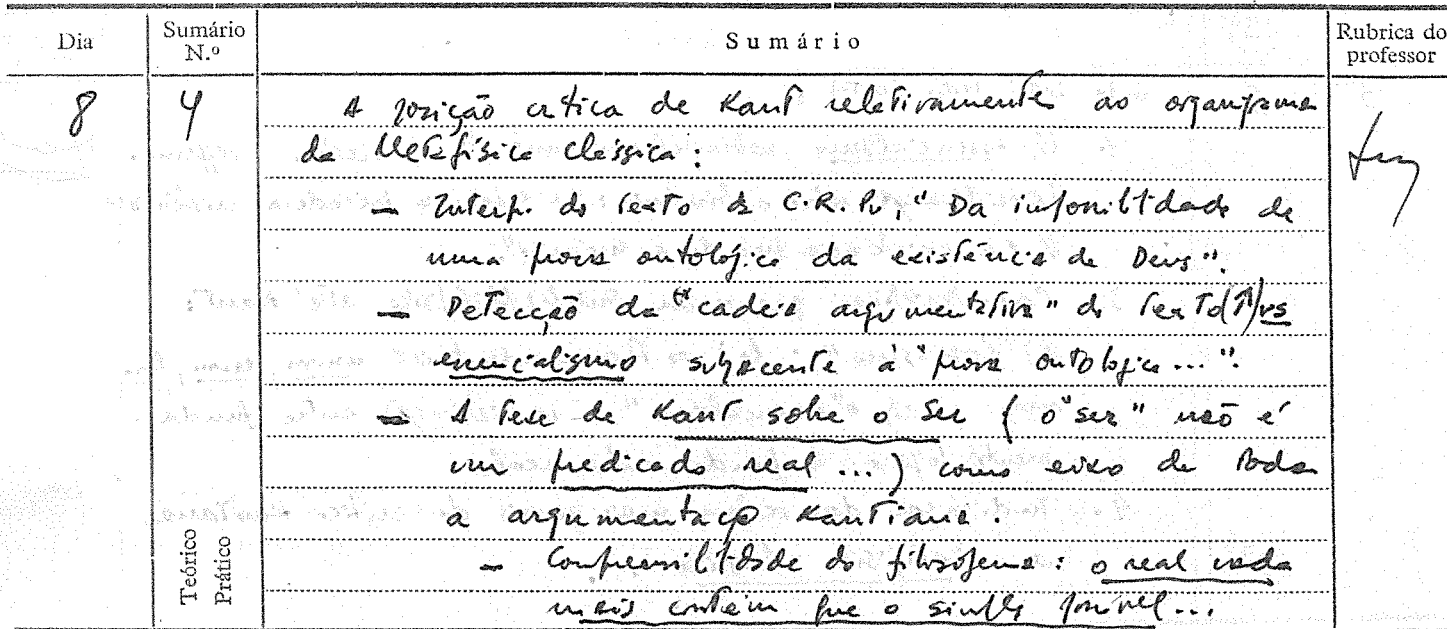 Dia Sumário N.º Sumário Rubrica do professor
8 4 A posição crítica de Kant relativamente ao organigrama
da Metafísica Clássica:
– Interp. do texto da C.R.Pu, "Da impossibilidade de
uma prova ontológica da existência de Deus".
– Detecção da "cadeia argumentativa" do texto (↑) vs
essencialismo subjacente à "prova ontológica...".
– A tese de Kant sobre o Ser (o "ser" não é
um predicado real...) como eixo de toda
a argumentação Kantiana.
– Compreensibilidade do filosofema: o real nada
mais contém que o simples possível...
Teórico
Prático